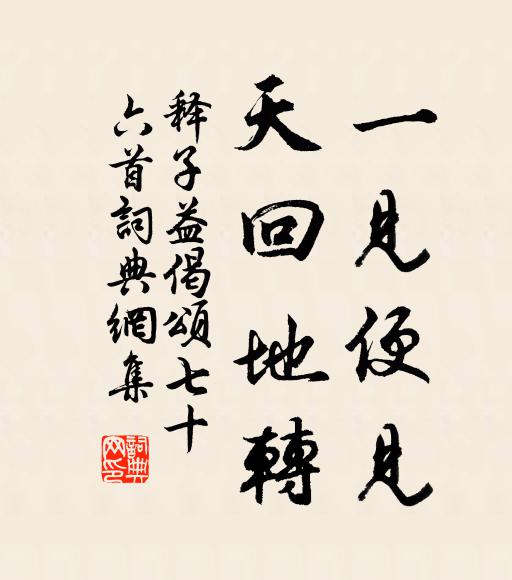 一見便見
天回地轉
释子益偈頌七十
六首詞典網集
詞典
网印